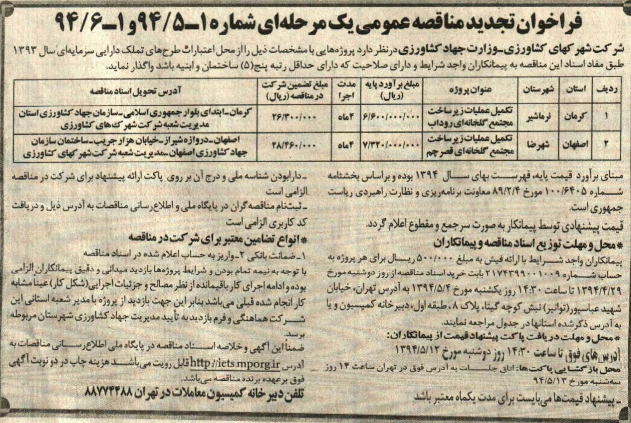 فراخوان تجدید مناقصه عمومی یک مرحله‌ای شماره ۱-۹۴/۵ و ۱-۹۴/۶
شرکت شهرکهای کشاورزی-وزارت جهاد کشاورزی در نظر دارد پروژه‌هایی با مشخصات ذیل را از محل اعتبارات طرح‌های تملک دارایی سرمایه‌ای سال ۱۳۹۳
طبق مفاد اسناد این مناقصه به پیمانکاران واجد شرایط و دارای صلاحیت که دارای حداقل رتبه پنج (۵) ساختمان و ابنیه باشد واگذار نماید.
ردیف استان شهرستان عنوان پروژه مبلغ برآورد پایه (ریال) مدت اجرا مبلغ تضمین شرکت در مناقصه (ریال) آدرس تحویل اسناد مناقصه
۱ کرمان نرماشیر تکمیل عملیات زیرساخت مجتمع گلخانه‌ای روداب ۶/۶۰۰/۰۰۰/۰۰۰ ۴ماه ۲۶/۳۰۰/۰۰۰ کرمان-ابتدای بلوار جمهوری اسلامی-سازمان جهاد کشاورزی استان
مدیریت شعبه شرکت شهرک‌های کشاورزی
۲ اصفهان شهرضا تکمیل عملیات زیرساخت مجتمع گلخانه‌ای قصرچم ۷/۳۲۰/۰۰۰/۰۰۰ ۴ماه ۲۸/۴۶۰/۰۰۰ اصفهان-دروازه شیراز-خیابان هزار جریب-ساختمان سازمان
جهاد کشاورزی اصفهان-مدیریت شعبه شرکت شهرکهای کشاورزی
مبنای برآورد قیمت پایه، فهرست بهای سال ۱۳۹۴ بوده و براساس بخشنامه
شماره ۱۰۰/۶۴۰۵ مورخ ۸۹/۲/۴ معاونت برنامه‌ریزی و نظارت راهبردی ریاست
جمهوری است.
قیمت پیشنهادی توسط پیمانکار به صورت سرجمع و مقطوع اعلام گردد.
* محل و مهلت توزیع اسناد مناقصه و پیمانکاران
پیمانکاران واجد شرایط با ارائه فیش به مبلغ ۵۰۰/۰۰۰ ریال برای هر پروژه به
حساب شماره ۲۱۷۴۳۹۹۰۰۱۰۰۹ بابت خرید اسناد مناقصه از روز دوشنبه مورخ
۱۳۹۴/۴/۲۹ تا ساعت ۱۴:۳۰ روز یکشنبه مورخ ۱۳۹۴/۵/۴ در آدرس تهران، خیابان
شهید عباسپور (توانیر) نبش کوچه گیتا، پلاک ۸، طبقه اول، دبیرخانه کمیسیون و یا
به آدرس ذکر شده استانها در جدول مراجعه نمایند.
* محل و مهلت دریافت پاکت پیشنهاد قیمت از پیمانکاران:
آدرس‌های فوق تا ساعت ۱۴:۳۰ روز دوشنبه مورخ ۱۳۹۴/۵/۱۲
محل بازگشایی پاکت‌ها: اتاق جلسات به آدرس فوق در تهران ساعت ۱۴ روز
سه‌شنبه مورخ ۹۴/۵/۱۳
ـ پیشنهاد قیمت‌ها می‌بایست برای مدت یکماه معتبر باشد
- دارا بودن شناسه ملی و درج آن بر روی پاکت ارائه پیشنهاد برای شرکت در مناقصه
الزامی است
- ثبت‌نام مناقصه گران در پایگاه ملی و اطلاع‌رسانی مناقصات به آدرس ذیل و دریافت
کد کاربری الزامی است
* انواع تضامین معتبر برای شرکت در مناقصه
۱-ضمانت بانکی ۲-واریز به حساب اعلام شده در اسناد مناقصه
با توجه به نیمه تمام بودن و شرایط پروژه‌ها بازدید میدانی و دقیق پیمانکاران الزامی
بوده و ادامه اجرای کار باقیمانده از نظر مصالح و جزئیات اجرایی (شکل کار) عینا مشابه
کار انجام شده قبلی می‌باشد بنابر این جهت بازدید از پروژه با مدیر شعبه استانی این
شرکت هماهنگی و فرم بازدید به تأیید مدیریت جهاد کشاورزی شهرستان مربوطه
برسد.
ضمناً این آگهی و خلاصه اسناد مناقصه در پایگاه ملی اطلاع‌رسانی مناقصات به
آدرس http://iets.mporg.ir قابل رویت می‌باشند هزینه چاپ در دو نوبت آگهی
فوق بر عهده برنده مناقصه می‌باشد.
تلفن دبیرخانه کمیسیون معاملات در تهران ۸۸۷۷۳۴۸۸